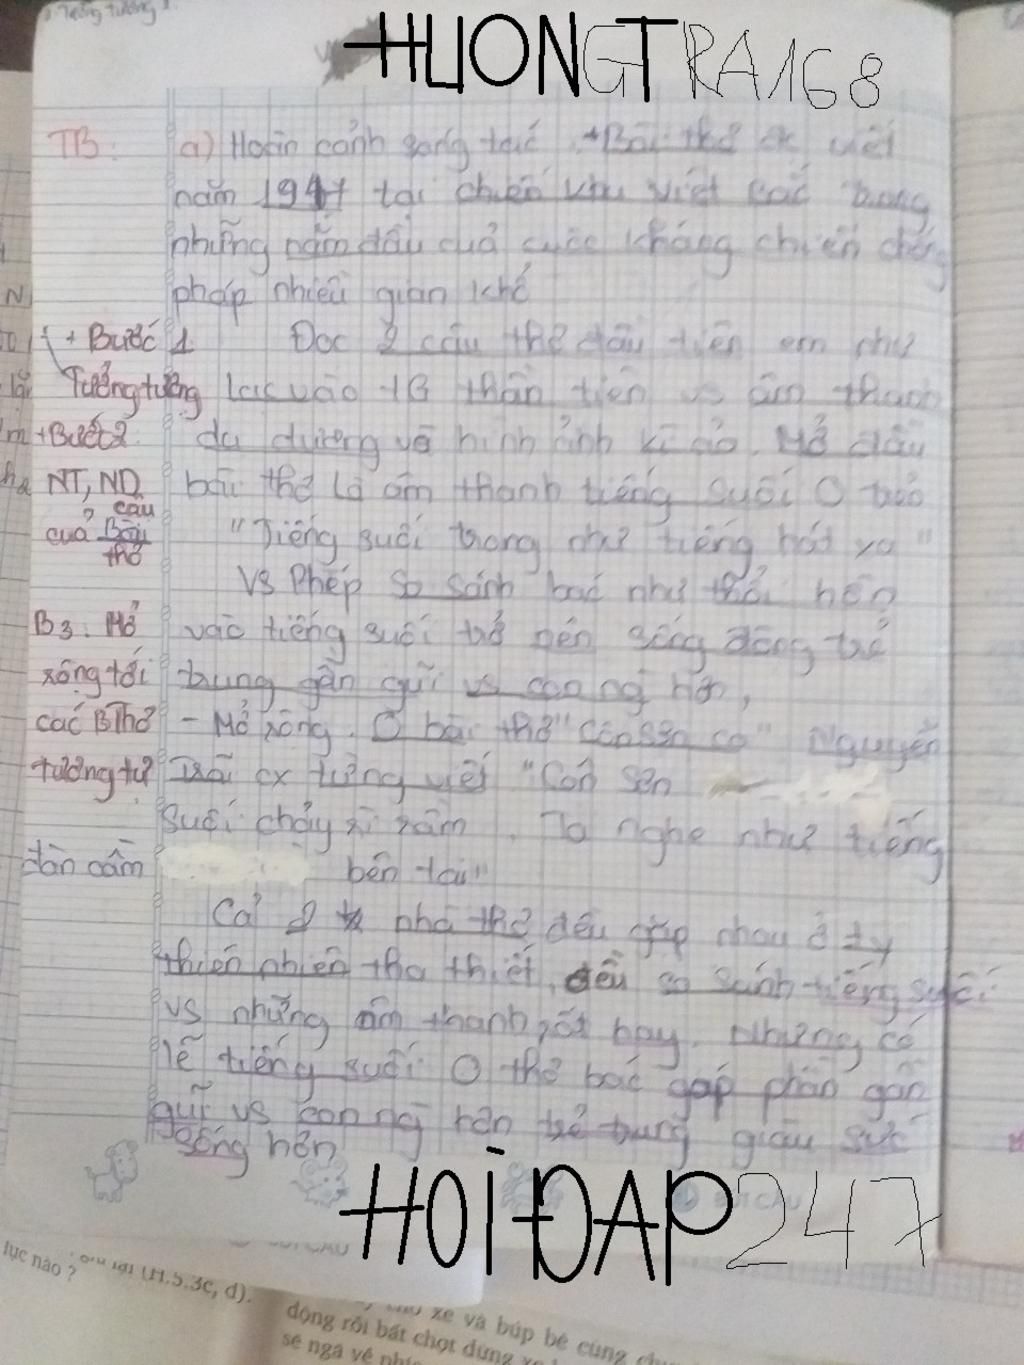 HUONGTRA168
TB: a) Hoàn cảnh sáng tác + Bài thơ đc viết
năm 1947 tại chiến khu Việt Bắc trong
những năm đầu của cuộc kháng chiến chống
pháp nhiều gian khổ
+ Bước 1 Đọc 2 câu thơ đầu tiên em như
Tưởng tượng lạc vào TG thần tiên vs âm thanh
+ Bước 2 du dương và hình ảnh kì ảo. Mở đầu
NT, ND bài thơ là âm thanh tiếng suối trẻo
của câu Bài thơ "Tiếng suối trong như tiếng hát xa"
vs Phép so sánh bác như thổi hồn
B3: Mở vào tiếng suối trở nên sống động trẻ
rộng tới trung gần gũi vs con ng hơn,
các BThơ - Mở rộng. Ở bài thơ "Côn Sơn ca" Nguyễn
tương tự Trãi cx từng viết "Côn Sơn
suối chảy rì rầm. Ta nghe như tiếng
đàn cầm bên tai"
Cả 2 nhà thơ đều gặp nhau ở ty
thiên nhiên tha thiết, đều so sánh tiếng suối
vs những âm thanh rất hay. Nhưng có
lẽ tiếng suối thơ bác góp phần gần
gũi vs con ng hơn trẻ trung giàu sức
sống hơn
HOIĐAP247
lục nào ? (H.5.3c, d).
xe và búp bê cùng
động rồi bất chợt dừng
sẽ ngã về